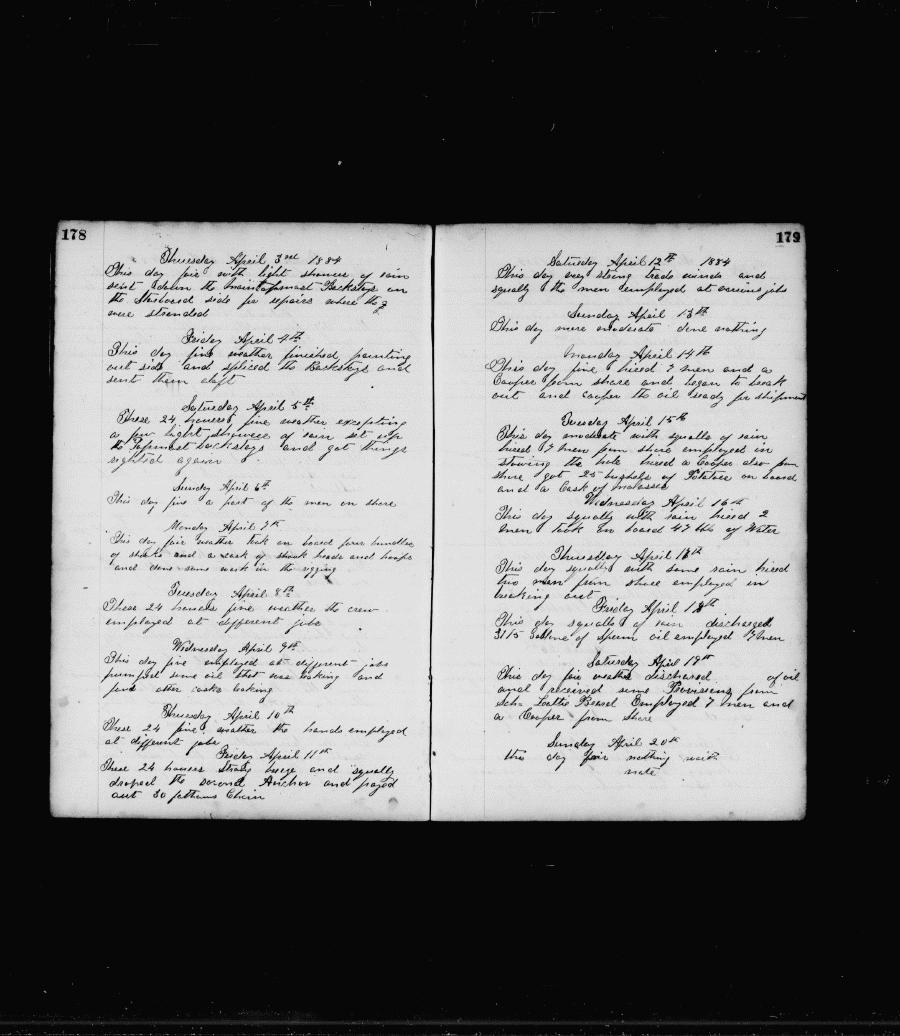 178
Thursday April 3rd 1884
This day fine with light showers of rain
sent down the maintopmast Backstays on
the Starboard side for repairs where they
were stranded
Friday April 4th
This day fine weather finished painting
out side and spliced the Backstays and
sent them aloft
Saturday April 5th
These 24 houres fine weather excepting
a few light showers of rain set up
the Topmast backstays and got things
righted again
Sunday April 6th
This day fine a part of the men on shore
Monday April 7th
This day fair weather took on board four bundles
of shooks and a cask of shook heads and hoops
and done some work in the rigging
Tuesday April 8th
These 24 houres fine weather the crew
employed at different jobs
Wednesday April 9th
This day fine employed at different jobs
pumped some oil that was leaking and
found other casks leaking
Thursday April 10th
These 24 fine weather the hands employed
at different jobs
Friday April 11th
These 24 houres strong breeze and squally
droped the second Anchor and payed
out 30 fathoms Chain
179
Saturday April 12th 1884
This day very strong trade winds and
squally the men employed at various jobs
Sunday April 13th
This day more moderate done nothing
Monday April 14th
This day fine hired 7 men and a
Cooper from shore and began to break
out and cooper the oil ready for shipment
Tuesday April 15th
This day moderate with squalls of rain
hired 7 men from shore employed in
stowing the hole hired a Cooper also from
shore got 25 bushels of Potatoes on board
and a Cask of molasses
Wednesday April 16th
This day squally with rain hired 2
men took on board 47 bbls of Water
Thursday April 18th
This day squally with some rain hired
two men from shore employed in
breaking out
Friday April 18th
This day squalls of rain discharged
3115 Gallons of Sperm oil employed 7 men
Saturday April 19th
This day fair weather discharged of oil
and received some Provisions from
Sch Lottie Beard Employed 7 men and
a Cooper from Shore
Sunday April 20th
this day fair nothing worth
note